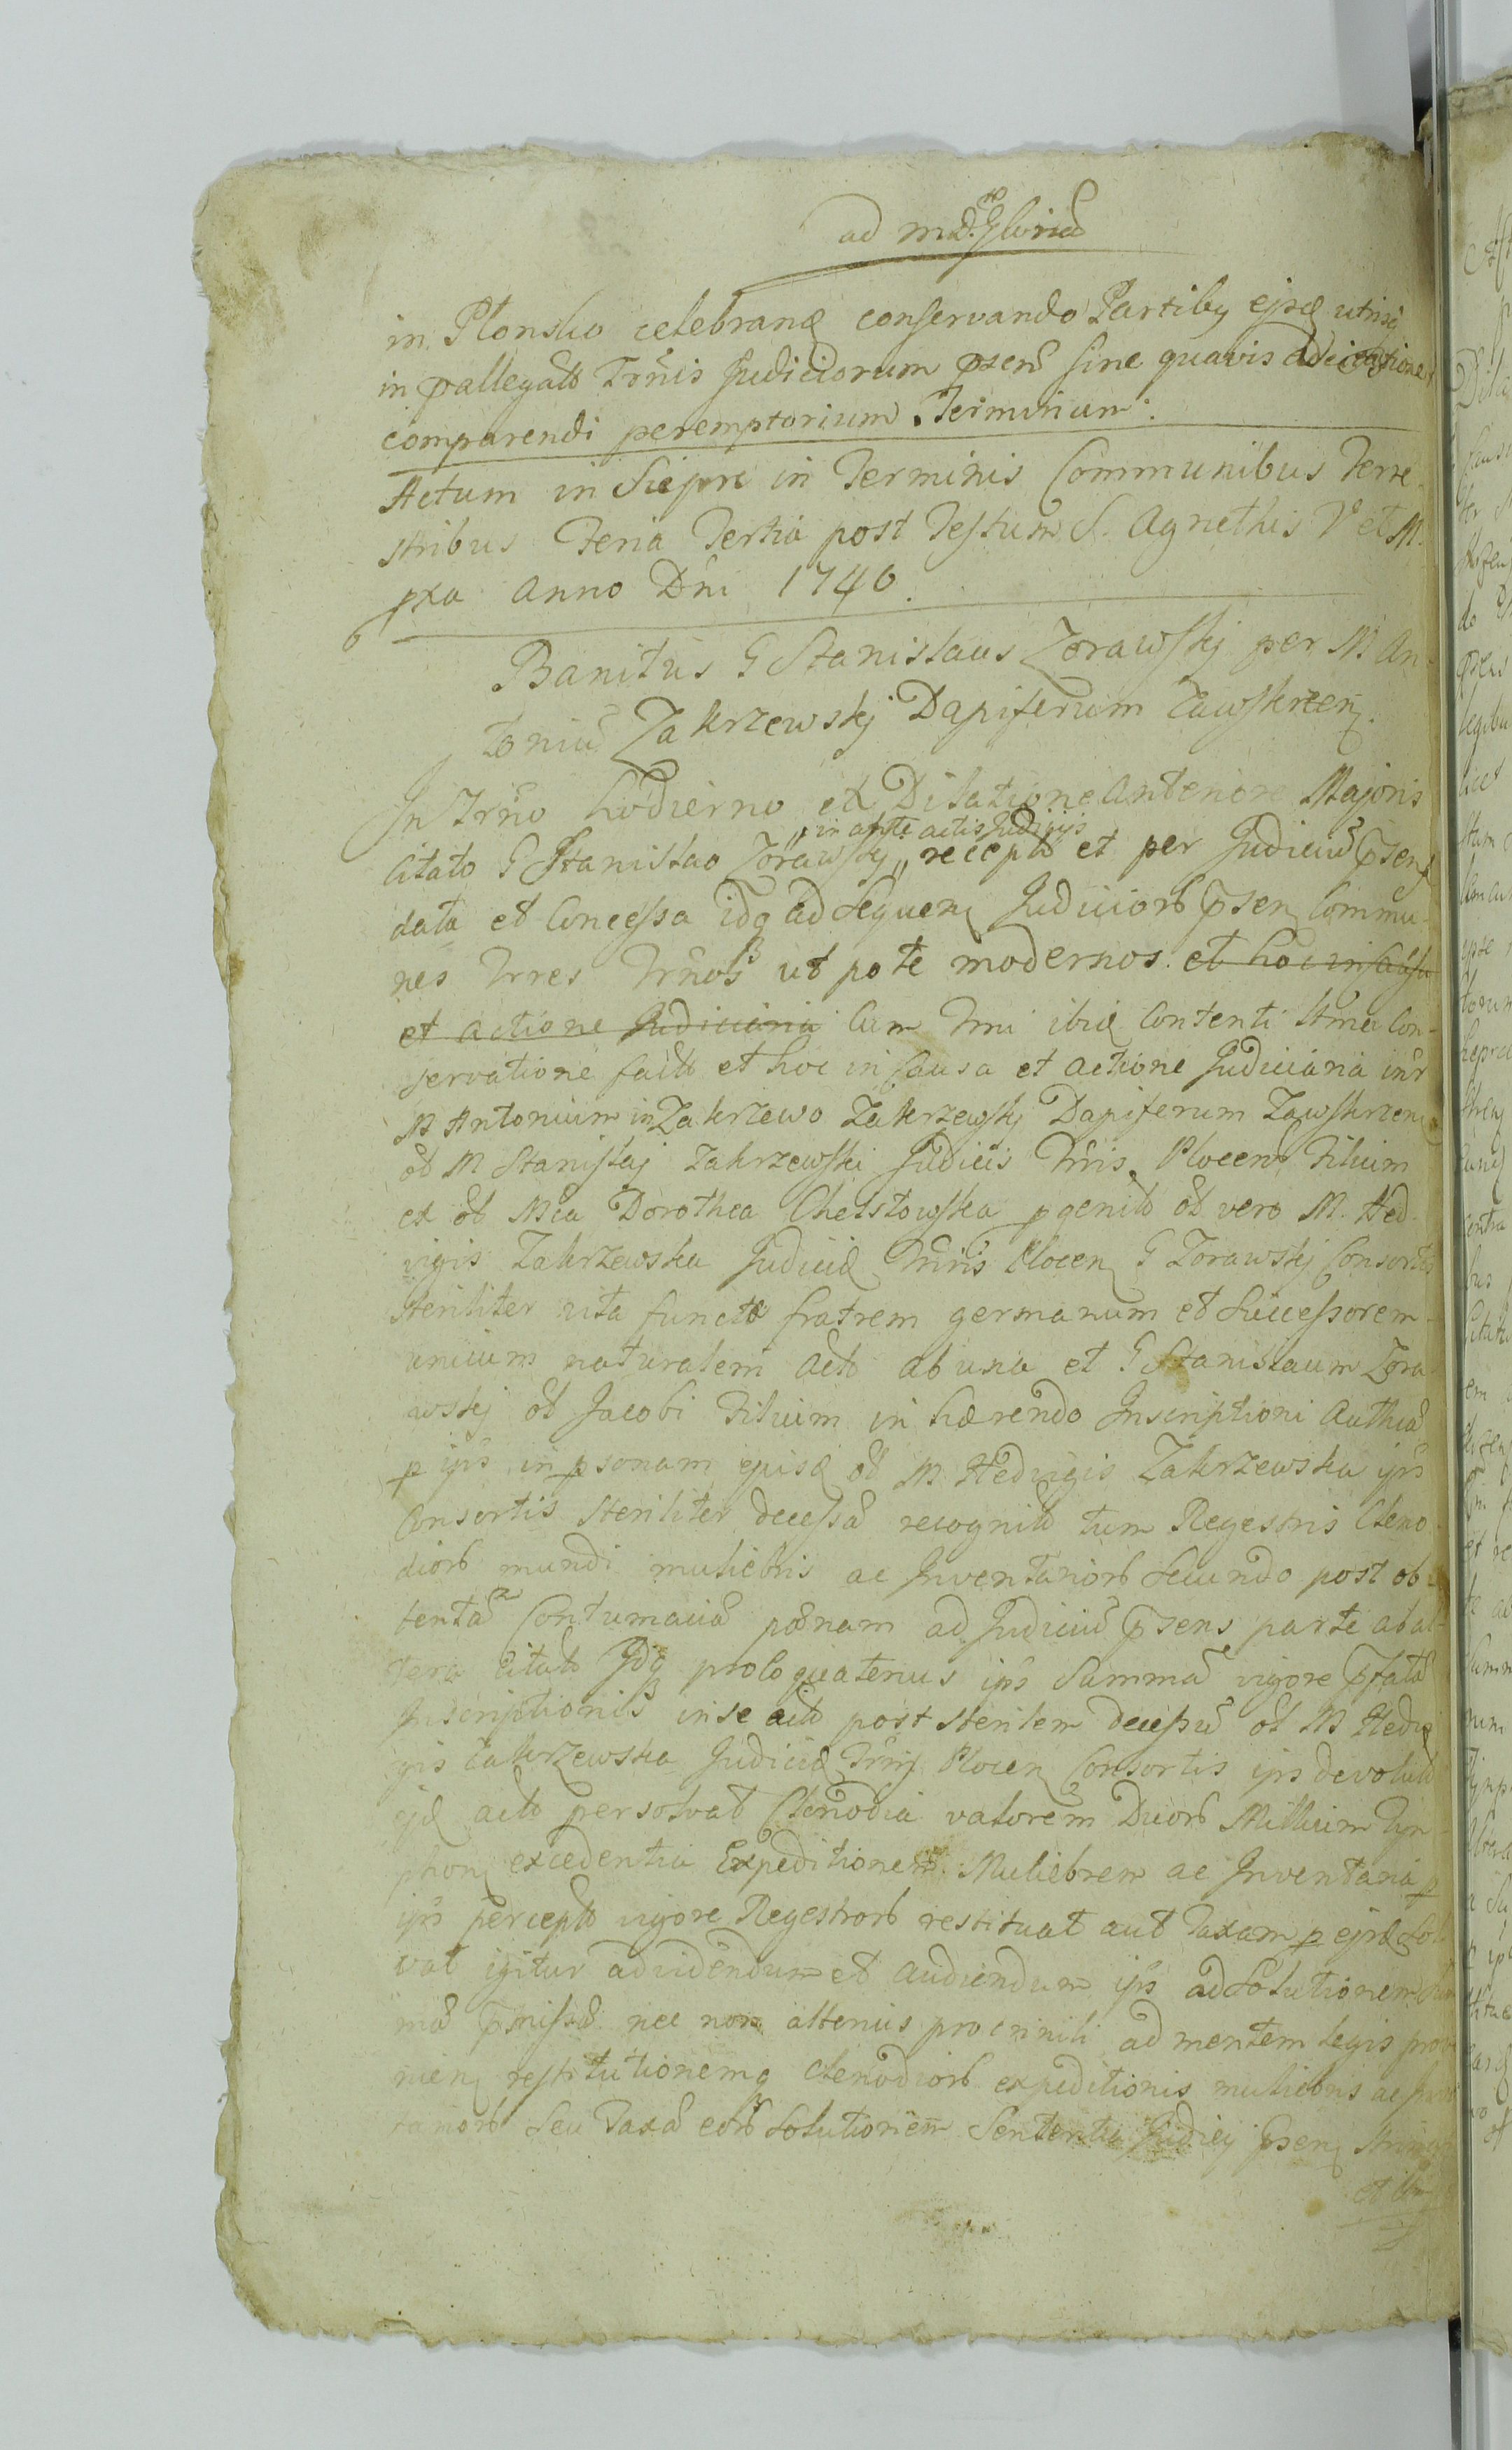 ad md. Glorią
in Plonsko celebranđ conservando Partibus ejsđ utrisq
in p̄allegatō Tr̄nis Judiciorum p̄sen̄ sine quavis adcitatione
comparendi peremptorium Terminum.
Actum in Sieprc in Terminis Communibus Terre-
stribus Feria Tertia post Festum S. Agnethis V et M.
pxa Anno Dn̄i 1746.
Banitus G Stanislaus Zorawskj per M. An-
toniū Zakrzewskj Dapiferum Zawskrzen.
In Trn̄o hodierno ex Dilatione anteriore Majoris
in ante actis Judicijs
Citato G Stanislao Zorawskj recepta et per Judiciū p̄sens
data et Concessa idq ad Sequen Judiciorū p̄sen Commu-
nes Trres Trn̄os ut pote modernos. et hoc in Causa
et actione Judiciaria Cum Trni ibiđ Contenti
servatione facto et hoc in Causa et actione Judiciaria intr
M Antonium in Zakrzewo Zakrzewskj Dapiferum Zawskrzen
ol M Stanislaj Zakrzewski Judicis Trris Plocen Filium
ex ol Mca Dorothea Chelstowska p̱genito ol vero M. Hed-
vigis Zakrzewska Judicis Trris Plocen G Zorawskj Consortis
steriliter vita functa fratrem germanum et Successorem
unicum naturalem Acto ab una et G Stanislaum Zora-
wskj ol Jacobi Filium in hærendo Inscriptioni
p̱ ips in p̱sonam ejusđ ol M Hedvigis Zakrzewska ips
Consortis steriliter decessa recognito tum Regestris Cleno-
diorū mundi muliebris ac Inventariorū Secundo post ob-
tentā Contumaciā pænam ad Judiciū p̄sens parte ab al-
tera Citato Idq prolo quatenus ips Summā vigore p̄fatā
Inscriptionis in se post sterilem decessū ol M Hedvi
gis Zakrzewska Judicis Trris Plocen Consortis ips devolutā
ejđ acto persolvat Clenodia valorem Duorū Millium Tym-
phon excedentia Expeditionem Muliebrem ac Inventaria p̱
ips percepta vigore Regestrorū restituat aut Taxam p̱ ejsđ sol
vat igitur ad videndum et audiendum ips ad Solutionem Sum
mā p̄missā nec non alterius pro crinili ad mentem legis prove
nien restitutionemq Clenodiorū expeditionis muliebris ac Inven
tariorū Seu Taxā eorū Solutionem Sententia Judicij p̄sen